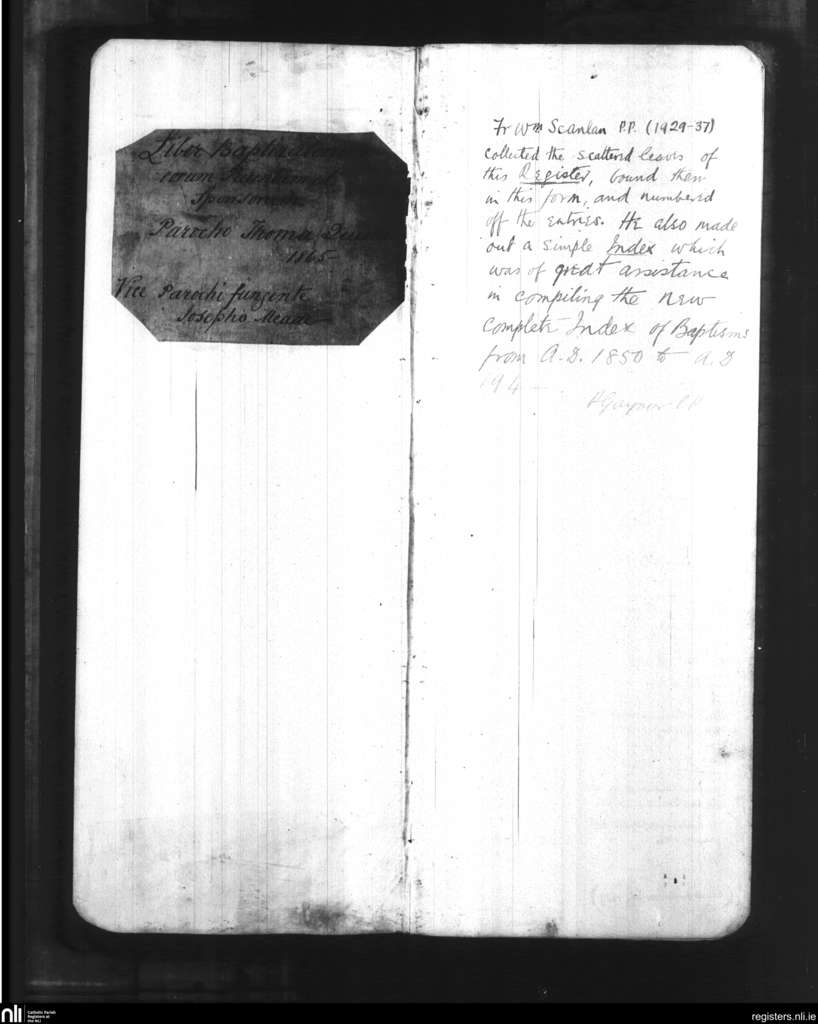 Liber Baptizatorum
eorum Parentum et
Sponsorum
Parocho Thoma
1865
Vice Parochi fungente
Josepho Meade
Fr Wm Scanlan P.P. (1929-37)
collected the scattered leaves of
this Register, bound them
in this form, and numbered
off the entries. He also made
out a simple Index which
was of great assistance
in compiling the new
complete Index of Baptisms
from A.D. 1850 to A.D
194
P Gaynor P.P.
nli
Catholic Parish
Registers at
the NLI
registers.nli.ie